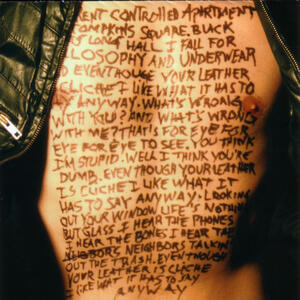 RENT CONTROLLED APARTMENT
TOMPKINS SQUARE, BUCK
LONG HALL, I FALL FOR
PHILOSOPHY AND UNDERWEAR
EVEN THOUGH YOUR LEATHER
CLICHE I LIKE WHAT IT HAS TO
SAY ANYWAY. WHAT'S WRONG
WITH YOU? AND WHAT'S WRONG
WITH ME? THAT IS FOR EYE FOR
EYE FOR EYE TO SEE. YOU THINK
I'M STUPID. WELL I THINK YOU'RE
DUMB. EVEN THOUGH YOUR LEATHER
IS CLICHE I LIKE WHAT IT
HAS TO SAY ANYWAY. LOOKING
OUT YOUR WINDOW LIFE'S NOTHING
BUT GLASS I HEAR THE PHONES
I HEAR THE BONES I HEAR
NEIGHBORS NEIGHBORS TALKIN'
OUT THE TRASH. EVEN THOUGH
YOUR LEATHER IS CLICHE
I LIKE WHAT IT HAS TO SAY
ANYWAY